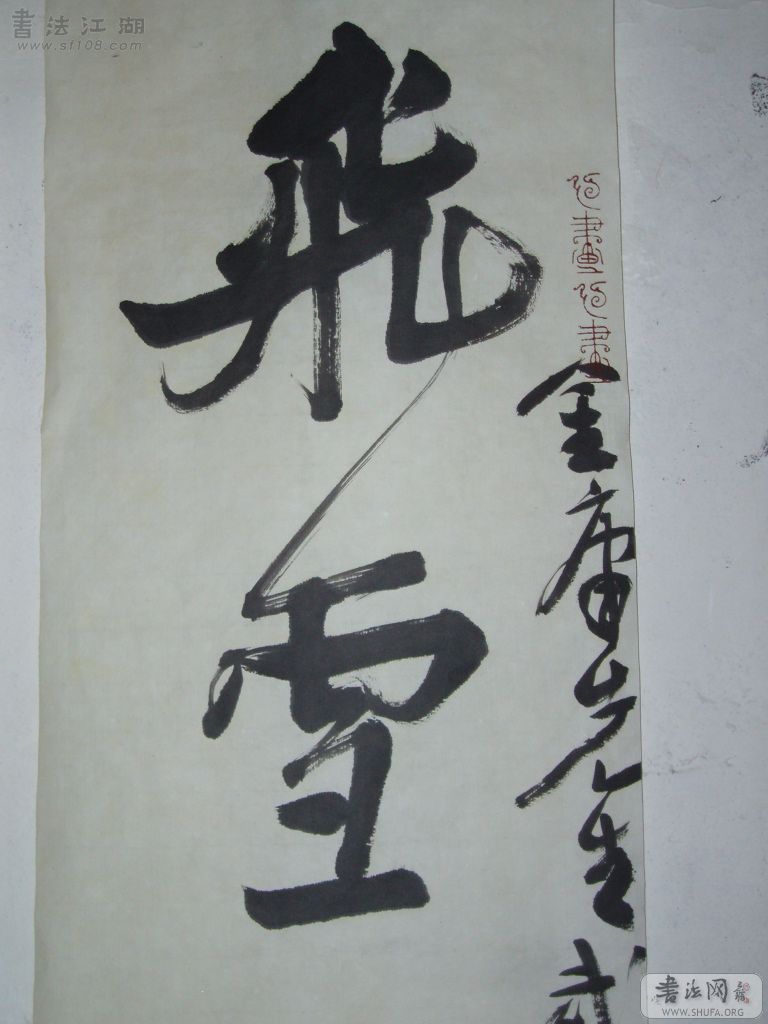 書法江湖
www.sf108.com
金庸先生武
飛雪
書法网
WWW.SHUFA.ORG